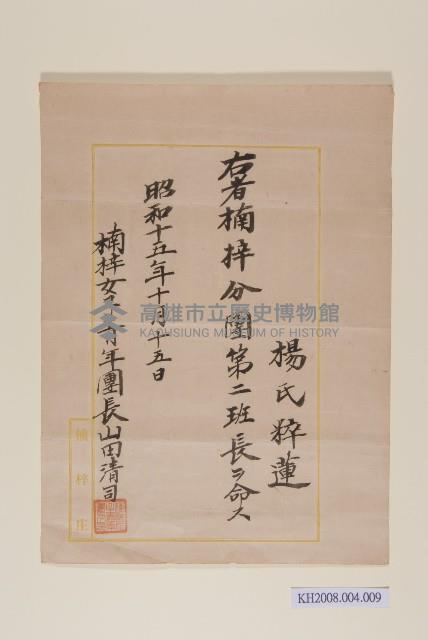 楊氏粹蓮
右者楠梓分團第二班長ヲ命ス
昭和十五年十月十五日
楠梓女子青年團長山田清司
楠梓庄
高雄市立歷史博物館
KAOHSIUNG MUSEUM OF HISTORY
KH2008.004.009